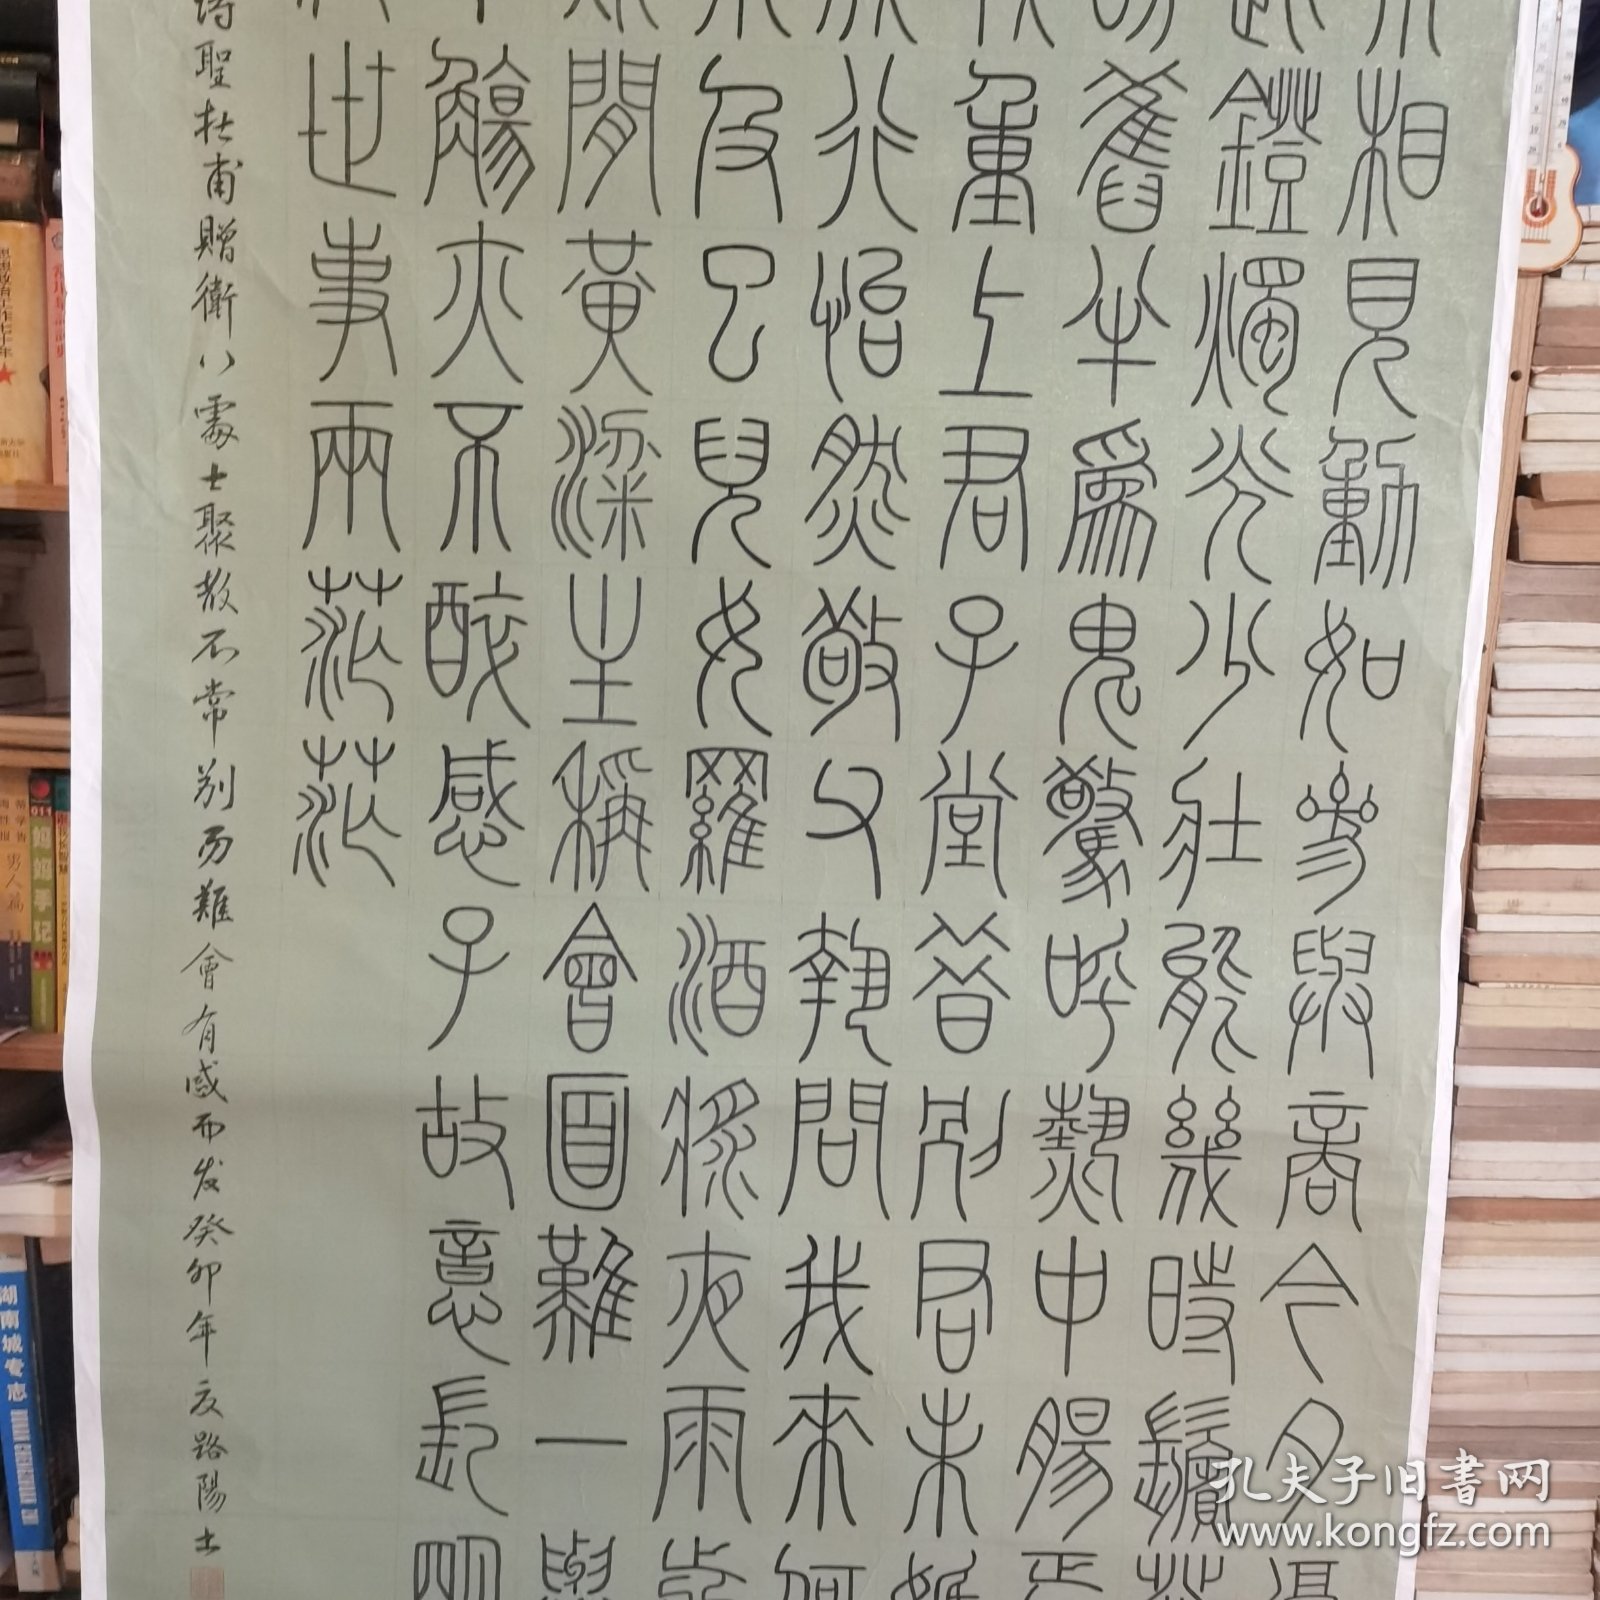 相見動如參與商今夕
鐙燭光少壯能幾時鬢
舊半爲鬼驚呼熱中腸
重上君子堂昔別君未
行怡然敬父執問我來
及已兒女羅酒漿夜雨
間黃粱主稱會面難一
觴亦不醉感子故意長明
世事兩茫茫
詩聖杜甫贈衛八處士聚散不常别易難會有感而发癸卯年夏路陽書
湖南城专志
孔夫子旧書网
www.kongfz.com